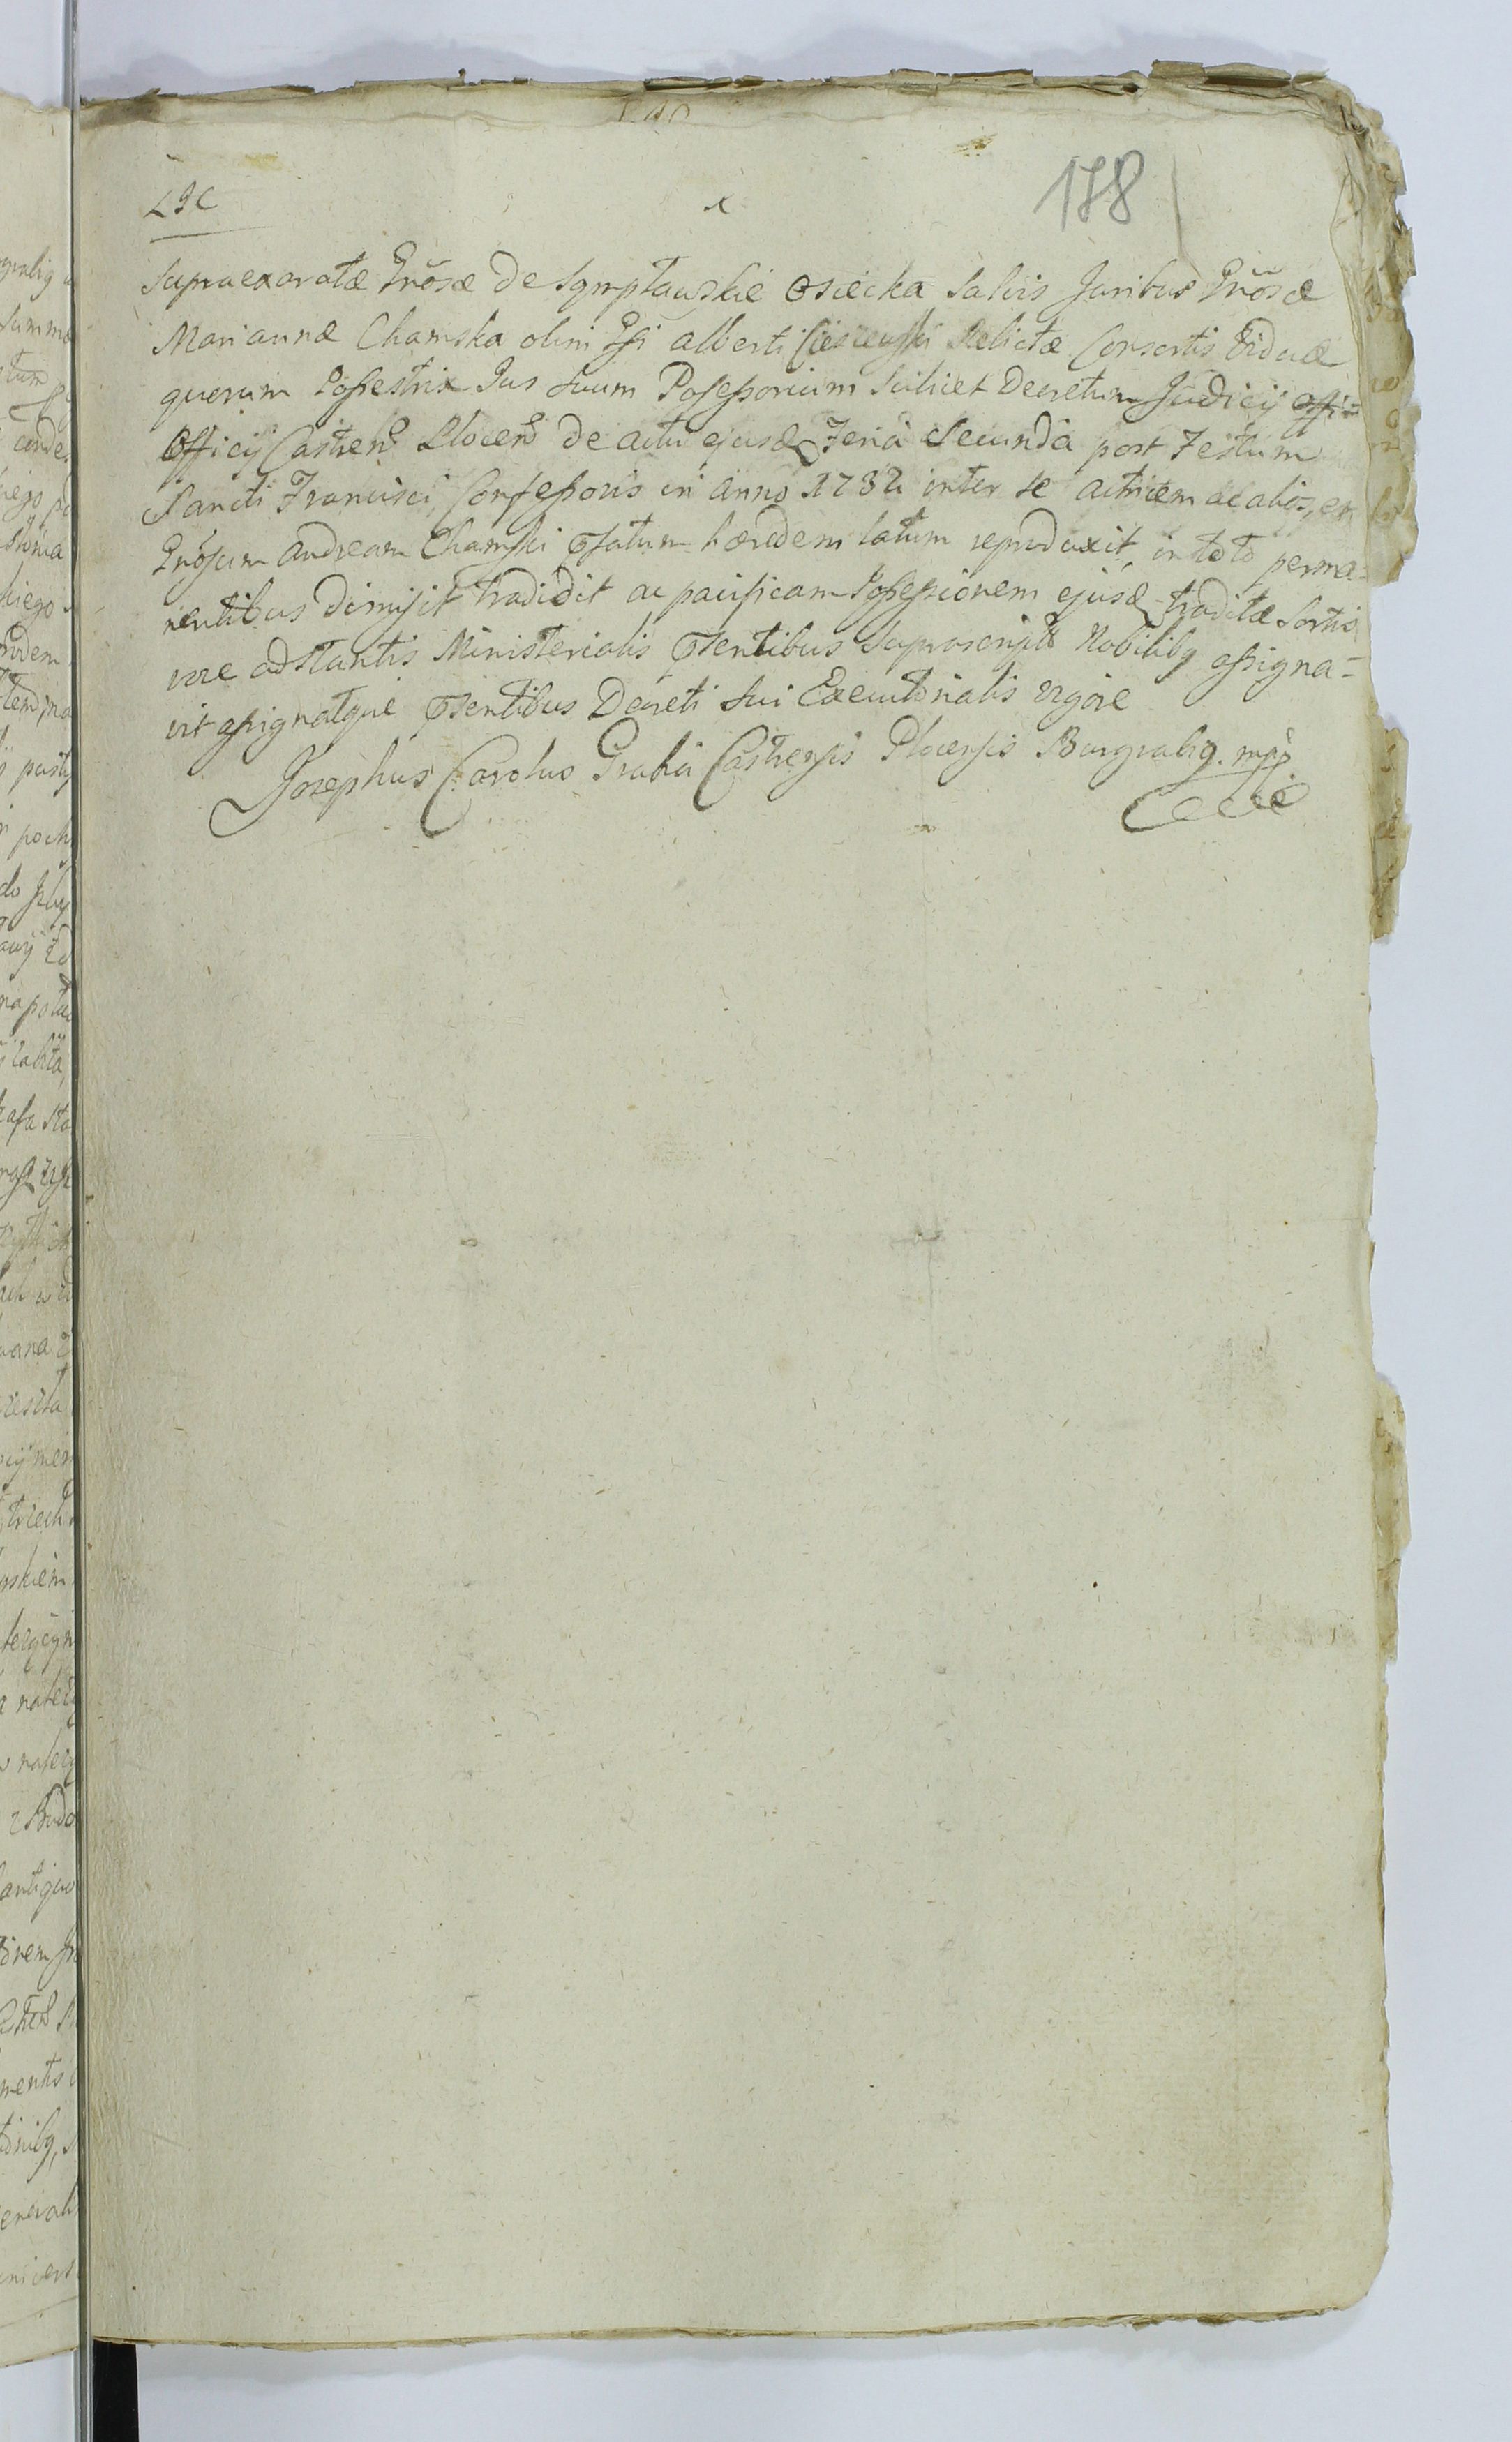 LSC
x
178
Supraexaratæ Gnõsæ De Sąmptawskie Osiecka Salvis Juribus Gnõsæ
Mariannæ Chamska olim Gsi Alberti Cieszewski Relictæ Consortis Viduæ
quorum Possestrix Jus Suum Possessorium Scilicet Decretum Judicij
Officij Castren Plocen De actu ejusd Feria Secunda post Festum
Sancti Francisci Confessoris in Anno 1782 inter se actricem ac alios, et
Gnosum Andream Chamski Psatum hæredem latum reproduxit, in toto perma=
nentibus Dimisit tradidit ac pacificam Possessionem ejusd traditæ Sortis
voce adstantis Ministerialis Psentibus Suprascript Nobilibq assigna-
vit assignatque Psentibus Decreti Sui Executorialis vigore
Josephus Carolus Grabia Castrensis Plocensis Burgrabiq. mpp